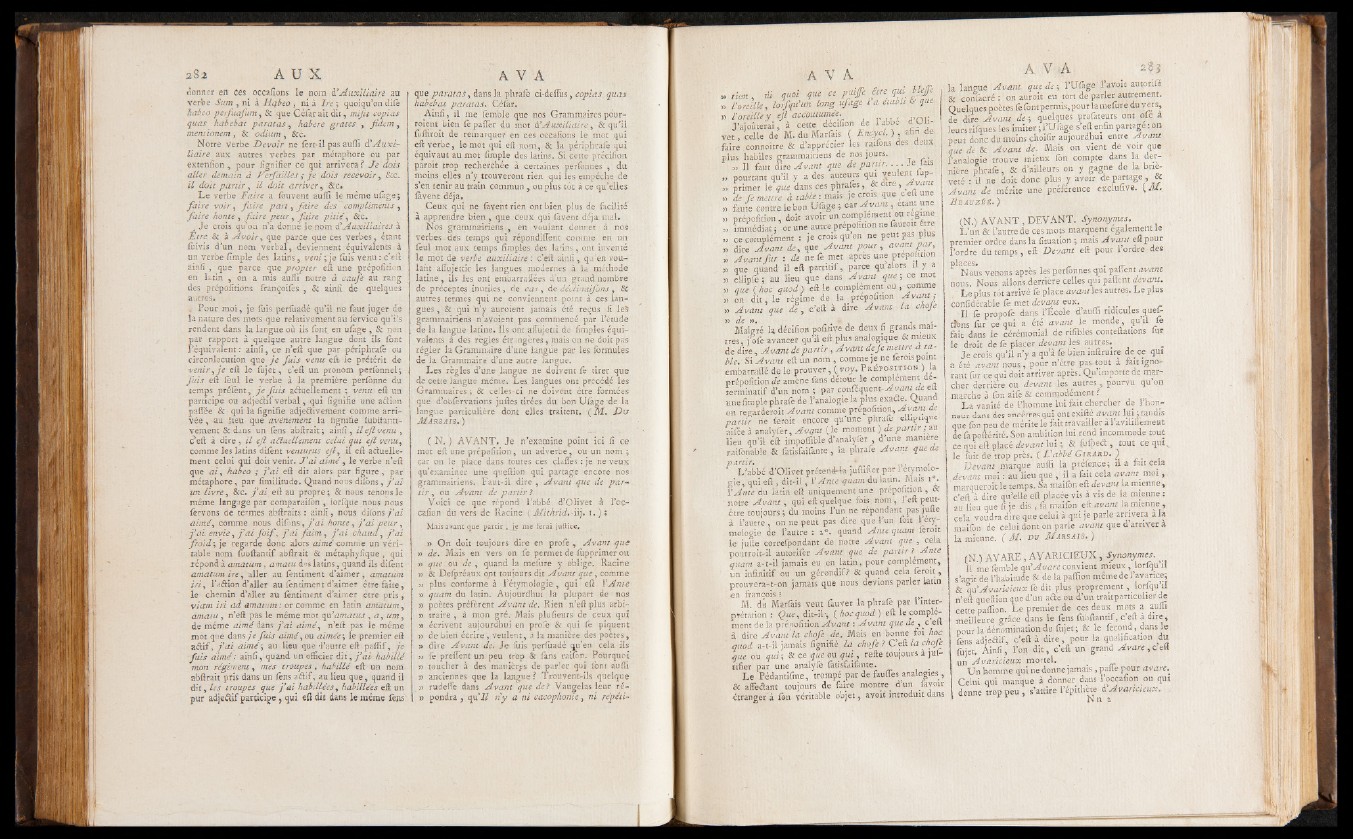 282 A U X A V A
donner en ces occasions le nom d'Auxiliaire au
verbe Sum, ni à Habeo, ni à Ire; quoiqu'on dise
habeo persuasum, & que César ait dit, misit copias
quas habebat paratas, habere grates, fidem,
mentionem, & odium, &c.
Notre verbe Devoir ne sert-il pas aussi d'Auxi-
liaire aux autres verbes par métaphore ou par
extension, pour signifier ce qui arrivera? Je dois
aller demain à Versailles; je dois recevoir, &c.
il doit partir, il doit arriver, &c.
Le verbe Faire a souvent aussi le même usage;
faire voir, faire part, faire des compliments,
faire honte, faire peur, faire pitié, &c.
Je crois qu'on n'a donné le nom d'Auxiliaires à
Être & à Avoir, que parce que ces verbes, étant
suivis d'un nom verbal, deviennent équivalents à
un verbe simple des latins, veni; je suis venu: c'est
ainsi, que parce que propter est une préposition
en latin, on a mis aussi notre à cause au rang
des prépositions françoises, & ainsi de quelques
autres.
Pour moi, je suis persuadé qu'il ne faut juger de
la nature des mots que relativement au service qu'ils
rendent dans la langue où ils sont en usage, & non
par rapport à quelque autre langue dont ils sont
l'équivalent: ainsi, ce n'est que par périphrase ou
circonlocution que je suis venu est le prétérit de
venir, je est le sujet, c'est un pronom personnel;
suis est seul le verbe à la première personne du
temps présent, je suis actuellement: venu est un
participe ou adjectif verbal, qui signifie une action
passée & qui la signifie adjectivement comme arri-
vée, au lieu que avènement la signifie substanti-
vement & dans un sens abstrait; ainsi, il est venu,
c'est à dire, il est actuellement celui qui est venu,
comme les latins disent venturus est, il est actuelle-
ment celui qui doit venir. J'ai aimé, le verbe n'est
que ai, habeo; j'ai est dit alors par figure, par
métaphore, par similitude. Quand nous disons, j'ai
un livre, &c. j'ai est au propre; & nous tenons le
même langage par comparaison, lorsque nous nous
servons de termes abstraits: ainsi, nous disons j'ai
aimé, comme nous disons, j'ai honte, j'ai peur,
j'ai envie, j'ai soif, j'ai faim, j'ai chaud, j'ai
froid; je regarde donc alors aimé comme un véri-
table nom substantif abstrait & métaphysique, qui
répond à amatum, amatu des latins, quand ils disent
amatum ire, aller au sentiment d'aimer, amatum
iri, l'action d'aller au sentiment d'aimer être faite,
le chemin d'aller au sentiment d'aimer être pris,
viam iri ad amatum: or comme en latin amatum,
amatu, n'est pas le même mot qu'amatus, a, um,
de même aimé dans j'ai aimé, n'est pas le même
mot que dans je suis aimé, ou aimée; le premier est
actif, j'ai aimé; au lieu que l'autre est passif, je
suis aimé: ainsi, quand un officier dit, j'ai habillé
mon régiment, mes troupes, habillé est un nom
abstrait pris dans un sens actif, au lieu que, quand il
dit, les troupes que j'ai habillées, habillées est un
pur adjectif participe, qui est dit dans le même sens
que paratas, dans la phrase ci-dessus, copias quas
habebat paratas. César.
Ainsi, il me semble que nos Grammaires pour-
roient bien se passer du mot d'Auxiliaire, & qu'il
suffiroit de remarquer en ces occasions le mot qui
est verbe, le mot qui est nom, & la périphrase qui
équivaut au mot simple des latins. Si cette précision
paroît trop recherchée à certaines personnes, du
moins elles n'y trouveront rien qui les empêche de
s'en tenir au train commun, ou plus tôt à ce qu'elles
savent déja.
Ceux qui ne savent rien ont bien plus de facilité
à apprendre bien, que ceux qui savent déja mal.
Nos grammairiens, en voulant donner à nos
verbes des temps qui répondissent comme en un
seul mot aux temps simples des latins, ont inventé
le mot de verbe auxiliaire: c'est ainsi, qu'en vou-
lant assujettir les langues modernes à la méthode
latine, ils les ont embarrassées d'un grand nombre
de préceptes inutiles, de cas, de déclinaisons, &
autres termes qui ne conviennent point à ces lan-
gues, & qui n'y auroient jamais été reçus si les
grammairiens n'avoient pas commencé par l'étude
de la langue latine. Ils ont assujetti de simples équi-
valents à des règles étrangères, mais on ne doit pas
régler la Grammaire d'une langue par les formules
de la Grammaire d'une autre langue.
Les règles d'une langue ne doivent se tirer que
de cette langue même. Les langues ont précédé les
Grammaires; & celles-ci ne doivent être formées
que d'observations justes tirées du bon Usage de la
langue particulière dont elles traitent. (M. Du
Marsais.)
(N.) AVANT. Je n'examine point ici si ce
mot est une préposition, un adverbe, ou un nom;
car on le place dans toutes ces classes: je ne veux
qu'examiner une question qui partage encore nos
grammairiens. Faut-il dire, Avant que de par-
tir, ou Avant de partir?
Voici ce que répond l'abbé d'Olivet à l'oc-
casion du vers de Racine (Mithrid. iij. 1.):
Mais avant que partir, je me ferai justice.
» On doit toujours dire en prose, Avant que
» de. Mais en vers on se permet de supprimer ou
» que ou de, quand la mesure y oblige. Racine
» & Despréaux ont toujours dit Avant que, comme
» plus conforme à l'étymologie, qui est l'Ante
» quam du latin. Aujourdhui la plupart de nos
» poètes préfèrent Avant de. Rien n'est plus arbi-
» traire, à mon gré. Mais plusieurs de ceux qui
» écrivent aujourdhui en prose & qui se piquent
» de bien écrire, veulent, à la manière des poètes,
» dire Avant de. Je suis persuadé qu'en cela ils
» se pressent un peu trop & sans raison. Pourquoi
» toucher à des manières de parler qui sont aussi
» anciennes que la langue? Trouvent-ils quelque
» rudesse dans Avant que de? Vaugelas leur ré-
» pondra, qu'Il n'y a ni cacophonie, ni répéti-
A V A A V A 283
» tion, ni quoi que ce puisse être qui blesse
» l'oreille, lorsqu'un long usage l'a établi & que
» l'oreille y est accoutumée.
J'ajoûterai, à cette décision de l'abbé d'Oli-
vet, celle de M. du Marsais. (Encycl.), afin de
faire connoître & d'apprécier les raisons des deux
plus habiles grammairiens de nos jours.
» Il faut dire Avant que de partir.... Je sais
» pourtant qu'il y a des auteurs qui veulent sup-
» primer le que dans ces phrases, & dire, Avant
» de se mettre à table: mais je crois que c'est une
» faute contre le bon Usage; car Avant, étant une
» préposition, doit avoir un complément ou régime
» immédiat; or une autre préposition ne sauroit être
» ce complément: je crois qu'on ne peut pas plus
» dire Avant de, que Avant pour, avant par,
» Avant sur: de ne se met après une préposition
» que quand il est partitif, parce qu'alors il y a
» ellipse; au lieu que dans Avant que, ce mot
» que (hoc quod) est le complément ou, comme
» on dit, le régime de la préposition Avant;
» Avant que de, c'est à dire Avant la chose
» de ».
Malgré la décision positive de deux si grands maî-
tres, j'ose avancer qu'il est plus analogique & mieux
de dire, Avant de partir, Avant de se mettre à ta-
ble. Si Avant est un nom, comme je ne serois point
embarrassé de le prouver, (voy. Préposition) la
préposition de amène sans détour le complément dé-
terminatif d'un nom; par conséquent Avant de est
une simple phrase de l'analogie la plus exacte. Quand
on regarderoit Avant comme préposition, Avant de
partir ne seroit encore qu'une phrase elliptique
aisée à analyser, Avant (le moment) de partir: au
lieu qu'il est impossible d'analyser, d'une manière
raisonable & satisfaisante, la phrase Avant que de
partir.
L'abbé d'Olivet prétend la justifier par l'étymolo-
gie, qui est, dit-il, l'Ante quam du latin. Mais 1°.
l'Ante du latin est uniquement une préposition, &
notre Avant, qui est quelque fois nom, l'est peut-
être toujours; du moins l'un ne répondant pas juste
à l'autre, on ne peut pas dire que l'un soit l'éty-
mologie de l'autre: 2°. quand Ante quam seroit
le juste correspondant de notre Avant que, cela
pourroit-il autoriser Avant que de partir? Ante
quam a-t-il jamais eu en latin, pour complément,
un infinitif ou un gérondif? & quand cela seroit,
prouvera-t-on jamais que nous devions parler latin
en françois?
M. du Marsais veut sauver la phrase par l'inter-
prétation: Que, dit-il, (hoc quod) est le complé-
ment de la préposition Avant: Avant que de, c'est
à dire Avant la chose de. Mais en bonne foi hoc
quod a-t-il jamais signifié la chose? C'est la chose
que ou qui; & ce que ou qui, reste toujours à jus-
tifier par une analyse satisfaisante.
Le Pédantisme, trompé par de fausses analogies,
& affectant toujours de faire montre d'un savoir
étranger à son véritable objet, avoit introduit dans
la langue Avant que de; l'Usage l'avoit autorisé
& consacré: on auroit eu tort de parler autrement.
Quelques poètes se sont permis, pour la mesure du vers,
de dire Avant de; quelques prosateurs ont osé à
leurs risques les imiter; l'Usage s'est enfin partagé: on
peut donc du moins choisir aujourdhui entre Avant
que de & Avant de. Mais on vient de voir que
l'analogie trouve mieux son compte dans la der-
nière phrase, & d'ailleurs on y gagne de la briè-
veté: il ne doit donc plus y avoir de partage, &
Avant de mérite une préférence exclusive. (M.
Beauzée.)
(N.) AVANT, DEVANT. Synonymes.
L'un & l'autre de ces mots marquent également le
premier ordre dans la situation; mais Avant est pour
l'ordre du temps, & Devant est pour l'ordre des
places.
Nous venons après les personnes qui passent avant
nous. Nous allons derrière celles qui passent devant.
Le plus tôt arrivé se place avant les autres. Le plus
considérable se met devant eux.
Il se propose dans l'École d'aussi ridicules ques-
tions sur ce qui a été avant le monde, qu'il se
fait dans le cérémonial de risibles contestations sur
le droit de se placer devant les autres.
Je crois qu'il n'y a qu'à se bien instruire de ce qui
a été avant nous, pour n'être pas tout à fait igno-
rant sur ce qui doit arriver après. Qu'importe de mar-
cher derrière ou devant les autres, pourvu qu'on
marche à son aise & commodément!
La vanité de l'homme lui fait chercher de l'hon-
neur dans des ancêtres qui ont existé avant lui; tandis
que son peu de mérite le fait travailler à l'avilissement
de sa postérité. Son ambition lui rend incommode tout
ce qui est placé devant lui; & suspect, tout ce qui
le suit de trop près. (L'abbé Girard.)
Devant marque aussi la présence; il a fait cela
devant moi: au lieu que, il a fait cela avant moi,
marqueroit le temps. Sa maison est devant la mienne,
c'est à dire qu'elle est placée vis à vis de la mienne:
au lieu que si je dis, sa maison est avant la mienne,
cela voudra dire que celui à qui je parle arrivera à la
maison de celui dont on parle avant que d'arriver à
la mienne. (M. du Marsais.)
(N.) AVARE, AVARICIEUX, Synonymes.
Il me semble qu'Avare convient mieux, lorsqu'il
s'agit de l'habitude & de la passion même de l'avarice;
& qu'Avaricieux se dit plus proprement, lorsqu'il
n'est question que d'un acte ou d'un trait particulier de
cette passion. Le premier de ces deux mots a aussi
meilleure grâce dans le sens substantif, c'est à dire,
pour la dénomination du sujet; & le second, dans le
sens adjectif, c'est à dire, pour la qualification du
sujet. Ainsi, l'on dit, c'est un grand Avare, c'est
un Avaricieux mortel.
Un homme qui ne donne jamais, passe pour avare.
Celui qui manque à donner dans l'occasion ou qui
donne trop peu, s'attire l'épithète d'Avaricieux.
N n 2